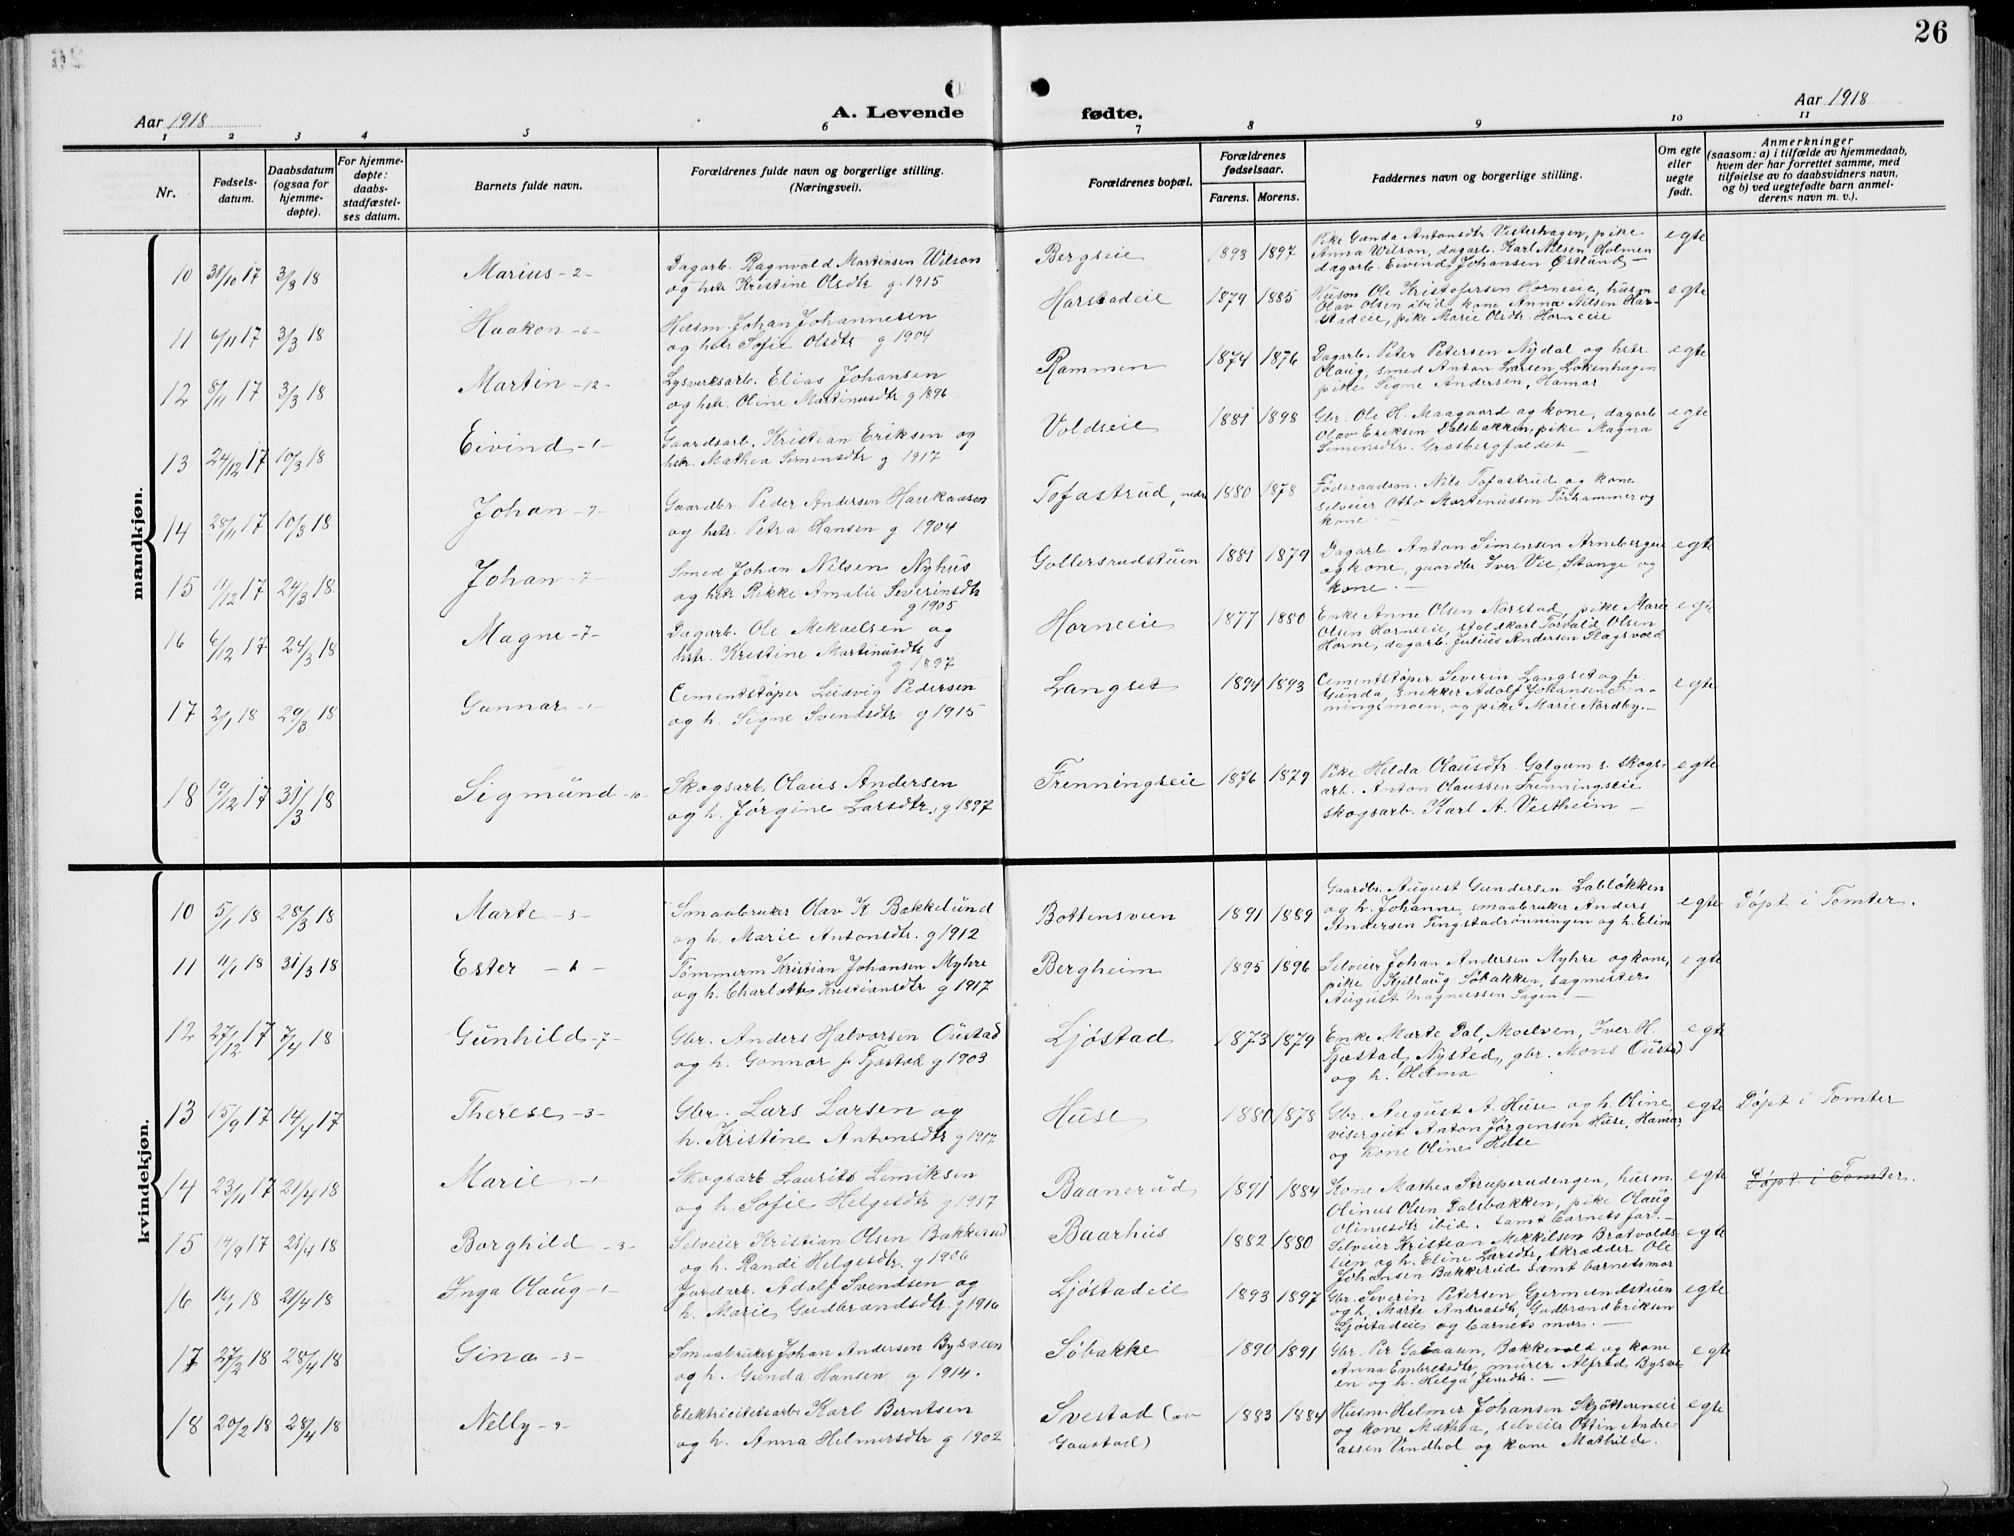 26
Aar 1918
A. Levende fødte.
Aar 1918
1 2 3 4 5 6 7 8 9 10 11
Nr.
Fødsels-
datum.
Daabsdatum
(ogsaa for
hjemme-
døpte).
For hjemme-
døpte:
daabs-
stadfæstel-
ses datum.
Barnets fulde navn.
Forældrenes fulde navn og borgerlige stilling.
(Næringsvei).
Forældrenes bopæl.
Forældrenes
fødselsaar.
Farens. Morens.
Faddernes navn og borgerlige stilling.
Om egte
eller
uegte
født.
Anmerkninger
(saasom: a) i tilfælde av hjemmedaab,
hvem der har forrettet samme, med
tilføielse av to daabsvidners navn,
og b) ved uegtefødte barn anmel-
derens navn m. v.).
mandkjøn.
10 31/10 17 3/3 18 Marius -2-
Dagarb. Ragnvald Martinsen Wilson
og hstr Kristine Olsdtr g. 1915
Bergseie 1893 1897
Pike Gunda Antonsdtr Vesterhagen, pike
Anna Wilson, dagarb. Karl Nilsen Holmen
dagarb. Eivind Johansen Østlund
egte
11 6/11 17 3/3 18 Haakon -6-
Husm. Johan Johannesen
og hstr Sofie Olsdtr g 1904
Harstadeie 1879 1885
Husm Ole Kristofersen Horneeie, husm
Olav Olsen ibid kone Anna Nilsen Har-
stadeie, pike Marie Olsdtr. Horneeie
egte
12 8/11 17 3/3 18 Martin -12-
Lysverksarb. Elias Johansen
og hstr. Oline Martinusdtr g 1896
Rammen 1874 1876
Dagarb. Peter Petersen Nydal og hstr.
Olaug, smed Anton Larsen Løkenhagen
pike Signe Andersen, Hamar
egte
13 24/12 17 10/3 18 Eivind -1-
Gaardsarb. Kristian Eriksen og
hstr. Mathea Simensdtr g 1917
Voldseie 1881 1898
Gbr. Ole H. Maagaard og kone, dagarb
Olav Eriksen Dalsbakken, pike Magna
Simensdtr.
egte
14 28/11 17 10/3 18 Johan -7-
Gaardbr. Peder Andersen Haukaasen
og hstr. Petra Hansen g 1904
Tofastrud, nedre 1880 1878
Føderaadsm. Nils Tofastrud og kone
selveier Otto Martinussen Torhammer og
kone
egte
15 11/12 17 24/3 18 Johan -7-
Smed Johan Nilsen Nyhus
og hstr Rikke Amalie Severinsdtr
g 1905
Gollersrudstuen 1881 1879
Dagarb Anton Simensen Arneberg
og kone, gaardbr Iver Vie, Stange og
kone
egte
16 6/12 17 24/3 18 Magne -7-
Dagarb. Ole Mekaelsen og
hstr. Kristine Martinusdtr
g 1897
Horneeie 1877 1880
Enke Anne Olsen Norstad, pike Marie
Olsen Horneeie, staldkarl Torvald Olsen
Horne, dagarb. Julius Andersen Slagsvold
egte
17 2/1 18 29/3 18 Gunnar -1-
Cementstøper Ludvig Pedersen
og h. Signe Svendsdtr g 1915
Langset 1894 1893
Cementstøper Severin Langset og h.
Gunda, snekker Adolf Johansen Fren-
ningsmoen, og pike Marie Nordby.
egte
18 19/12 17 31/3 18 Sigmund -10-
Skogsarb. Olaus Andersen
og h. Jørgine Larsdtr. g 1897
Frenningseie 1876 1879
Pike Helda Olausdtr. Galgum s. skogs-
arb. Anton Olaussen Frenningseie
skogsarb. Karl A. Vestheim
egte
kvindekjøn.
10 5/1 18 28/3 18 Marte -3-
Smaabruker Olav K Bakkelund
og h. Marie Antonsdtr. g 1912
Bottensveen 1891 1889
Gaardbr. August Gundersen Labløkken
og h. Johanne, smaabruker Anders
Andersen Tingstadrønningen og h. Eline
egte Døpt i Tomter.
11 11/1 18 31/3 18 Ester -1-
Tømmerm Kristian Johansen Myhre
og h. Charlotte Kristiansdtr g 1917
Bergheim 1895 1896
Selveier Johan Andersen Myhre og kone,
pike Kjellaug Søbakken, sagmester
August Magnussen Sagen
egte
12 27/12 17 7/4 18 Gunhild -7-
Gbr. Anders Halvorsen Oustad
og h. Gonnor f. Fjæstad g 1903
Ljøstad 1873 1879
Enke Marte Dal, Moelven, Iver H.
Fjæstad, Nysted, gbr. Mons Oustad
og h. Helma
egte
13 15/9 17 14/4 17 Therese -3-
Gbr. Lars Larsen og
h. Kristine Antonsdtr g 1912
Huse 1880 1878
Gbr. August A. Huse og h. Oline,
visergut Anton Jørgensen Huse, Hamar
og kone Oline Huse
egte Døpt i Tomter
14 23/11 17 21/4 18 Marie -1-
Skogsarb Laurits Lemiksen
og h. Sofie Helgesdtr g 1917
Baanerud 1891 1884
Kone Mathea Struperudengen, husm.
Olinus Olsen Dalsbakken, pike Olaug
Olinusdtr ibid. samt barnets far.
egte Døpt i Tomter.
15 14/9 17 21/4 18 Borghild -3-
Selveier Kristian Olsen Bakkerud
og h. Randi Helgesdtr. g 1906
Baarhus 1882 1880
Selveier Kristian Mekkelsen Bratvolds-
lien og h. Eline Larsdtr, skrædder Ole
Johansen Bakkerud samt barnets mor
egte
16 14/1 18 21/4 18 Inga Olaug -1-
Jordarb. Adolf Svendsen og
h. Marie Gudbrandsdtr. g 1916
Ljøstadeie 1893 1897
Gbr. Severin Petersen Germundstuen
og h. Marte Andreasdtr, Gudbrand Eriksen
Ljøstadeie og barnets mor.
egte
17 27/2 18 28/4 18 Gina -3-
Smaabruker Johan Andersen Bysveen
og h. Gunda Hansen g 1914.
Søbakke 1890 1891
Gbr. Per Galaasen, Bakkevold og kone
Anna Embretsdtr, murer Alfred Bysve-
en og h. Helga Jensdtr.
egte
18 20/2 18 28/4 18 Nelly -9-
Elektricitetsarb Karl Berntsen
og h. Anna Helmersdtr g 1902
Svestad (av
Gaustad) 1883 1884
Husm. Helmer Johansen Skjøttereneie
og kone Mathea, selveier Ottin Andre-
assen Vindhol og kone Mathilde.
egte